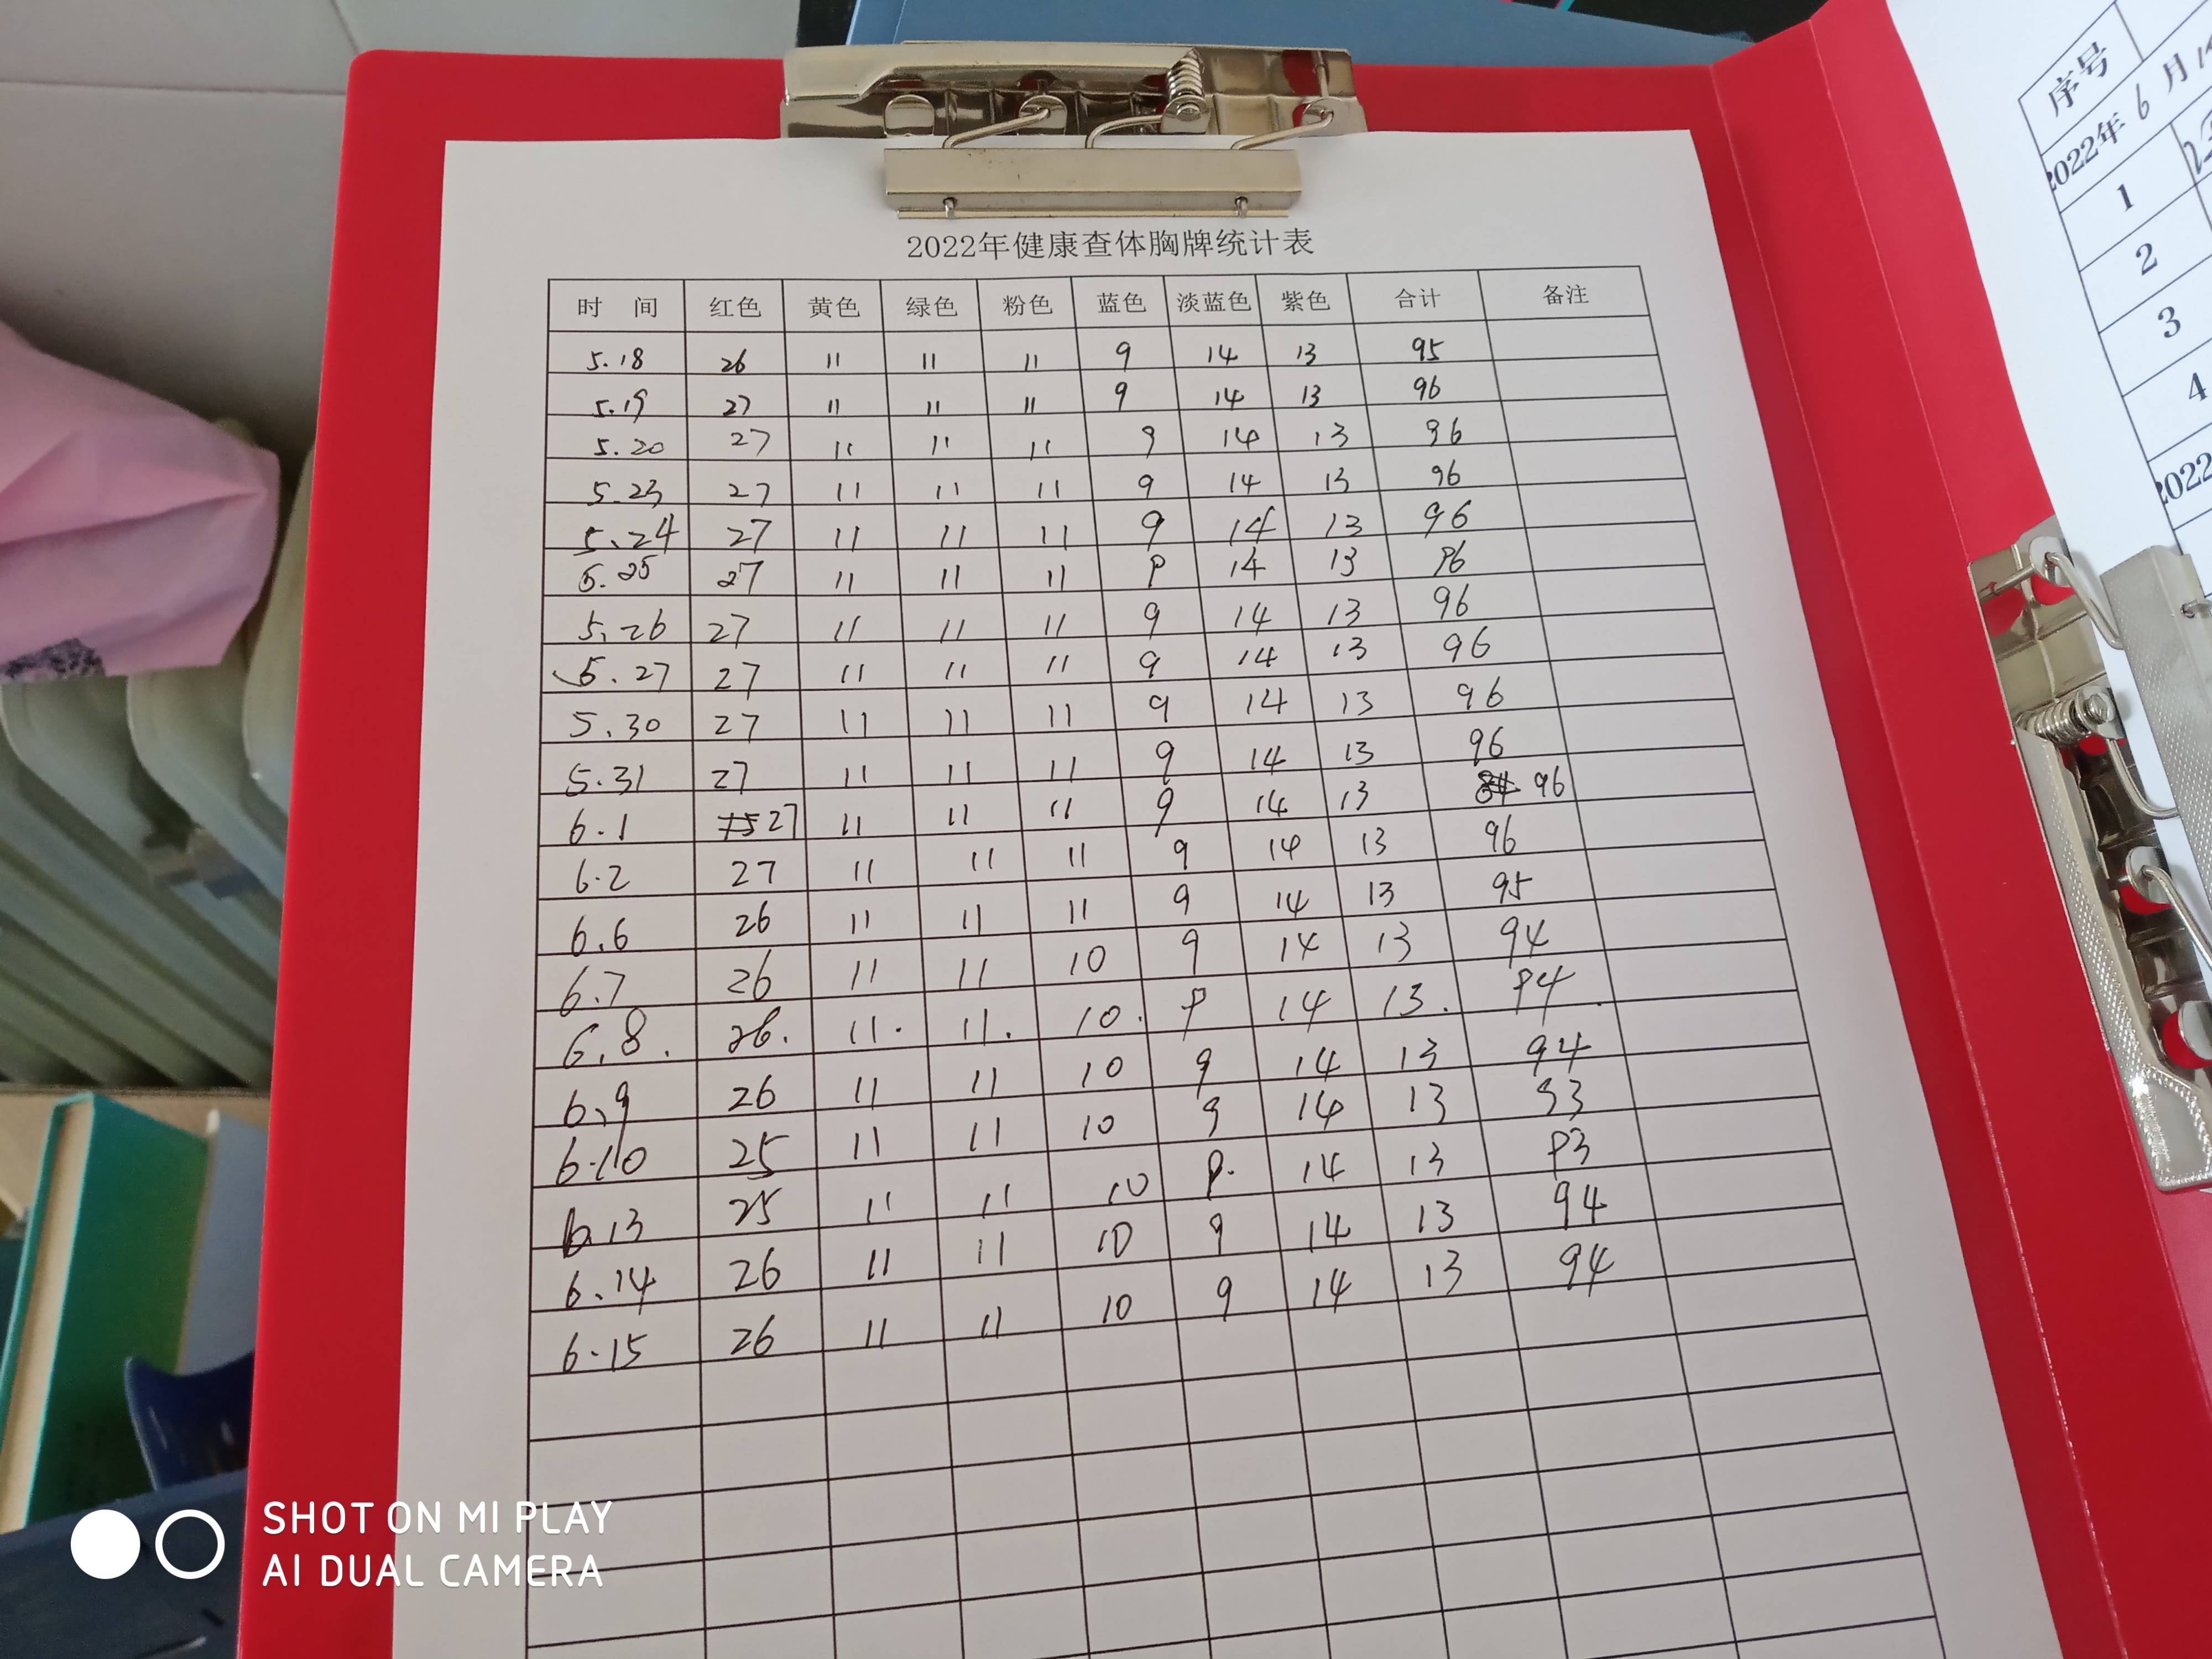 2022年健康查体胸牌统计表
时 间 红色 黄色 绿色 粉色 蓝色 淡蓝色 紫色 合计 备注
5.18 26 11 11 11 9 14 13 95
5.19 27 11 11 11 9 14 13 96
5.20 27 11 11 11 9 14 13 96
5.23 27 11 11 11 9 14 13 96
5.24 27 11 11 11 9 14 13 96
5.25 27 11 11 11 9 14 13 96
5.26 27 11 11 11 9 14 13 96
5.27 27 11 11 11 9 14 13 96
5.30 27 11 11 11 9 14 13 96
5.31 27 11 11 11 9 14 13 96
6.1 27 11 11 11 9 14 13 96
6.2 27 11 11 11 9 14 13 96
6.6 26 11 11 11 9 14 13 95
6.7 26 11 11 10 9 14 13 94
6.8. 26. 11. 11. 10. 9 14 13. 94
6.9 26 11 11 10 9 14 13 94
6.10 25 11 11 10 9 14 13 93
6.13 25 11 11 10 9. 14 13 93
6.14 26 11 11 10 9 14 13 94
6.15 26 11 11 10 9 14 13 94
序号
2022年 6 月
1
2
3
4
2022
SHOT ON MI PLAY
AI DUAL CAMERA